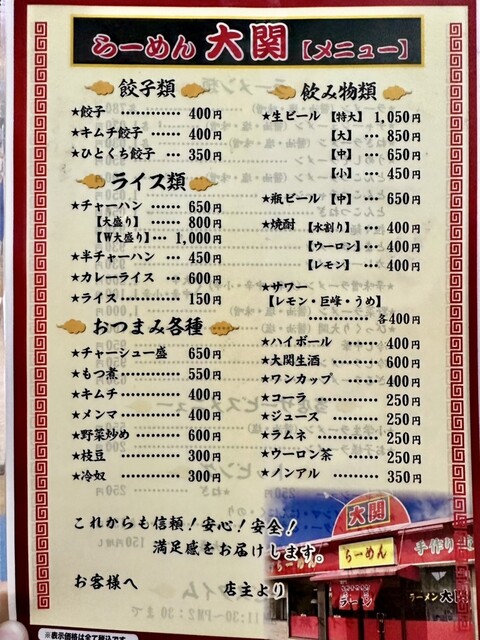 らーめん 大関【メニュー】
餃子類
★餃子 ………… 400円
★キムチ餃子 … 400円
★ひとくち餃子 … 350円
ライス類
★チャーハン …… 650円
【大盛り】…… 800円
【W大盛り】… 1,000円
★半チャーハン … 450円
★カレーライス … 600円
★ライス ……… 150円
おつまみ各種
★チャーシュー盛 650円
★もつ煮 ……… 550円
★キムチ ……… 400円
★メンマ ……… 400円
★野菜炒め …… 600円
★枝豆 ………… 300円
★冷奴 ………… 300円
飲み物類
★生ビール【特大】 1,050円
【大】… 850円
【中】… 650円
【小】… 450円
★瓶ビール【中】… 650円
★焼酎【水割り】… 400円
【ウーロン】… 400円
【レモン】… 400円
★サワー
【レモン・巨峰・うめ】
………… 各400円
★ハイボール …… 400円
★大関生酒 …… 600円
★ワンカップ …… 400円
★コーラ ……… 250円
★ジュース …… 250円
★ラムネ ……… 250円
★ウーロン茶 … 250円
★ノンアル …… 350円
これからも信頼！安心！安全！
満足感をお届けします。
お客様へ 店主より
大関
らーめん
手作り
ラーメン 大関
※表示価格は全て税込です